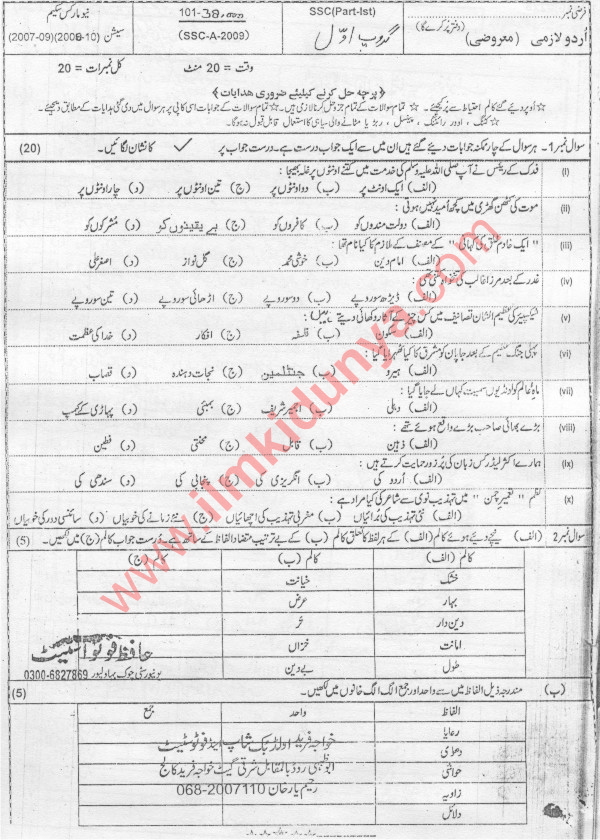 نیو مارکس سکیم
سیشن (2008-10)(2007-09)
101-
(SSC-A-2009)
SSC(Part-Ist)
گروپ اوّل
فرضی نمبر
(دفتر پُر کرے گا)
اُردو لازمی (معروضی)
وقت = 20 منٹ
کل نمبرات = 20
﴿پرچہ حل کرنے کیلئے ضروری ھدایات﴾
☆ اُوپر دیئے گئے کالم احتیاط سے پُر کیجئے۔ ☆ تمام سوالات کے تمام جز حل کرنا لازمی ہیں۔ ☆ تمام سوالات کے جوابات اسی کاپی پر ہر سوال میں دی گئی ہدایات کے مطابق دیجئے۔
☆ کٹنگ، اوور رائٹنگ، پینسل، ربڑ یا مٹانے والی سیاہی کا استعمال قابل قبول نہ ہوگا۔
سوال نمبر 1۔ ہر سوال کے چار ممکنہ جوابات دیئے گئے ہیں ان میں سے ایک جواب درست ہے۔ درست جواب پر ✓ کا نشان لگائیں۔ (20)
(i) فدک کے رئیس نے آپ صلی اللہ علیہ وسلم کی خدمت میں کتنے اونٹوں پر غلہ بھیجا:
(الف) ایک اونٹ پر (ب) دو اونٹوں پر (ج) تین اونٹوں پر (د) چار اونٹوں پر
(ii) موت کی کٹھن گھڑی میں کچھ اُمید نہیں ہوتی:
(الف) دولت مندوں کو (ب) کافروں کو (ج) بے یقینوں کو (د) مشرکوں کو
(iii) "ایک خادم خلق کی کہانی" کے مصنف کے ملازم کا کیا نام تھا:
(الف) امام دین (ب) خوشی محمد (ج) گل نواز (د) اصغر علی
(iv) غدر کے بعد مرزا غالب کی تنخواہ کتنی تھی:
(الف) ڈیڑھ سو روپے (ب) دو سو روپے (ج) اڑھائی سو روپے (د) تین سو روپے
(v) شیکسپیئر کی عظیم الشان تصانیف میں کس چیز کے آثار دکھائی دیتے ہیں:
(الف) سکون (ب) فلسفہ (ج) افکار (د) خدا کی عظمت
(vi) پہلی جنگ عظیم کے بعد جاپان کو مشرق کا کیا ٹھہرایا گیا:
(الف) ہیرو (ب) جنٹلمین (ج) نجات دہندہ (د) قصاب
(vii) ماہ عالم کو لونڈیوں سمیت کہاں لے جایا گیا:
(الف) دہلی (ب) اجمیر شریف (ج) بمبئی (د) پہاڑی کے کیمپ
(viii) بڑے بھائی صاحب بڑے واقع ہوئے تھے:
(الف) ذہین (ب) قابل (ج) محنتی (د) فطین
(ix) ہمارے اکثر لیڈر کس زبان کی پُر زور حمایت کرتے ہیں:
(الف) اُردو کی (ب) انگریزی کی (ج) پنجابی کی (د) سندھی کی
(x) نظم "تعمیر چمن" میں تہذیب نوی سے شاعر کی کیا مراد ہے:
(الف) نئی تہذیب کی بُرائیاں (ب) مغربی تہذیب کی اچھائیاں (ج) نئے زمانے کی خوبیاں (د) سائنسی دور کی خوبیاں
سوال نمبر 2 (الف) نیچے دیئے ہوئے کالم (الف) کے ہر لفظ کا تعلق کالم (ب) کے بے ترتیب متضاد الفاظ کے ساتھ ہے۔ درست جواب کالم (ج) میں لکھیں۔ (5)
کالم (الف) کالم (ب) کالم (ج)
خشک خیانت
بہار عرض
دین دار تر
امانت خزاں
طول بے دین
حافظ فوٹو اسٹیٹ
یونیورسٹی چوک بہاولپور 0300-6827869
(ب) مندرجہ ذیل الفاظ میں سے واحد اور جمع الگ الگ خانوں میں لکھیں۔ (5)
الفاظ واحد جمع
رعایا
دھڑی
حواشی
زاویہ
دلائل
خواجہ فرید اولڈ بک شاپ اینڈ فوٹوسٹیٹ
ابوظہبی روڈ بالمقابل شرقی گیٹ خواجہ فرید کالج
رحیم یار خان 068-2007110
www.ilmkidunya.com